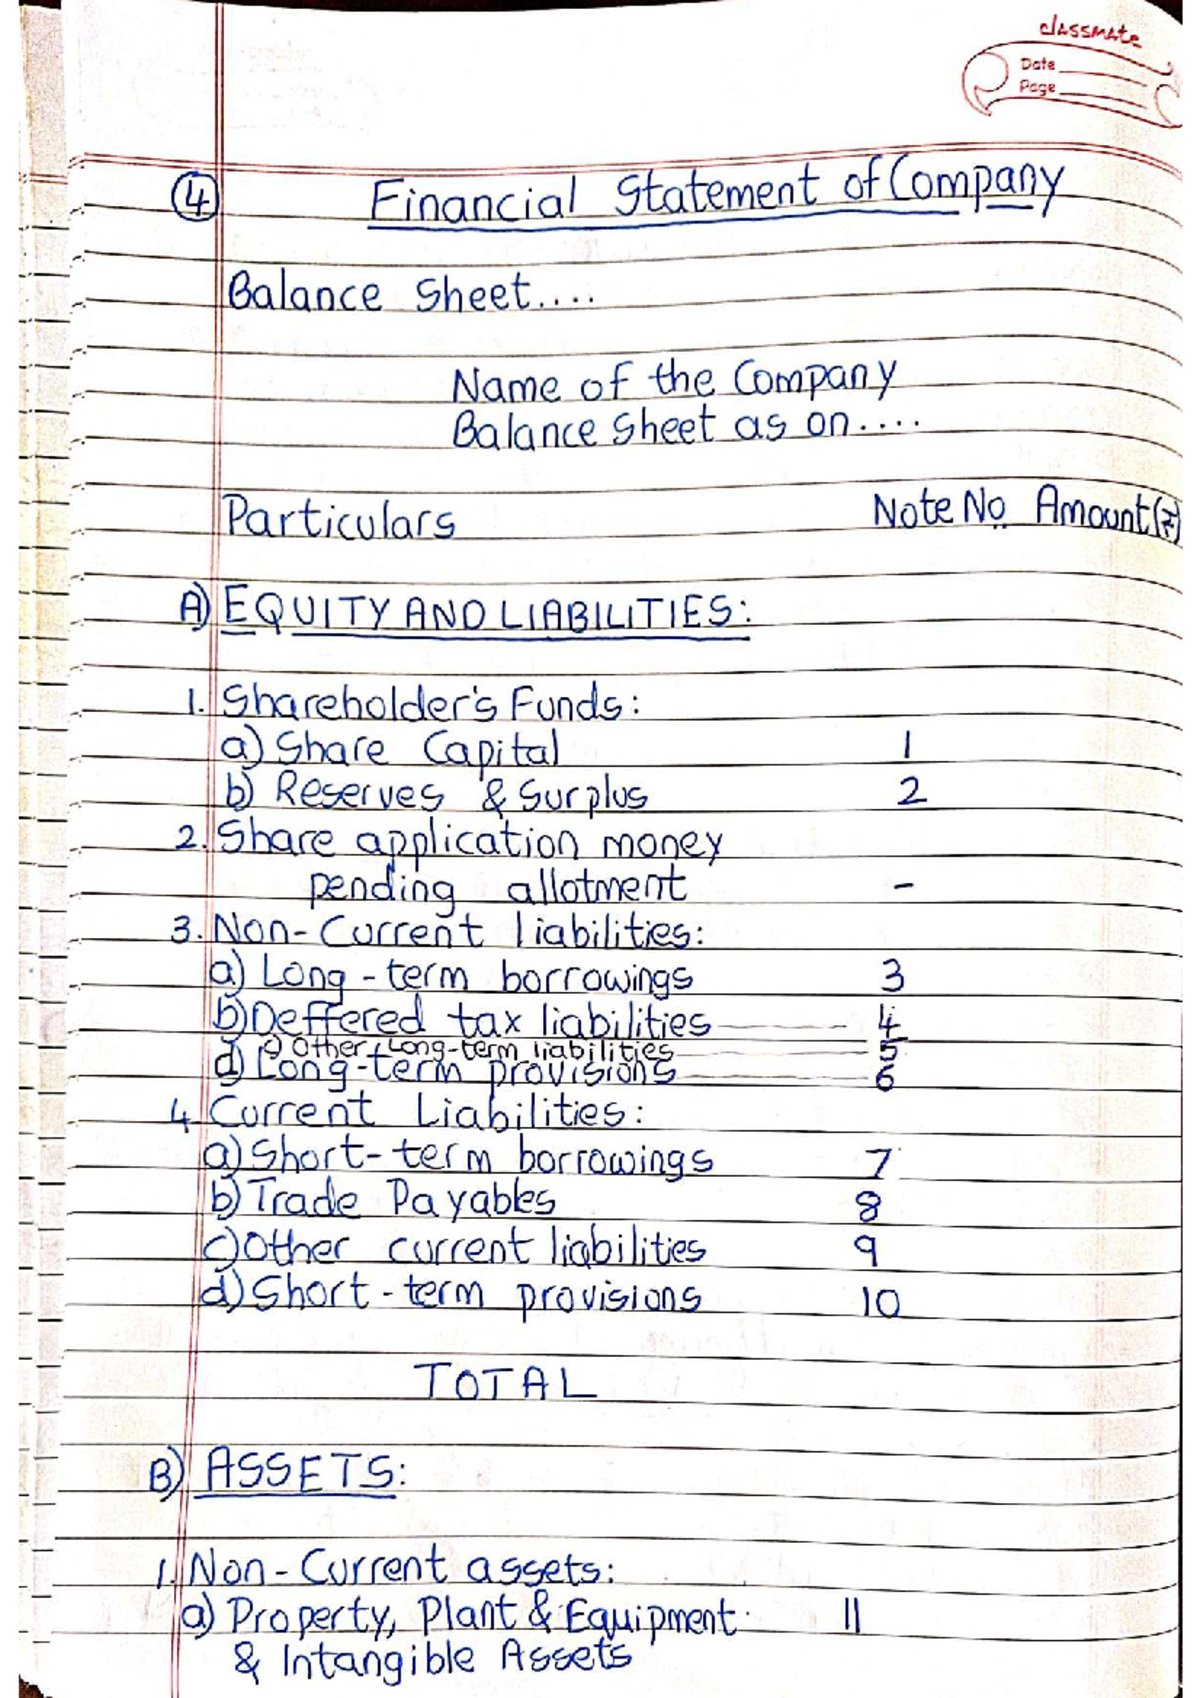 classmate
Date
Page
④ Financial Statement of Company
Balance Sheet....
Name of the Company
Balance Sheet as on....
Particulars Note No. Amount(₹)
A) EQUITY AND LIABILITIES:
1. Shareholder's Funds:
a) Share Capital 1
b) Reserves & Surplus 2
2. Share application money
pending allotment -
3. Non-Current liabilities:
a) Long-term borrowings 3
b) Deffered tax liabilities 4
c) Other Long-term liabilities 5
d) Long-term provisions 6
4. Current Liabilities:
a) Short-term borrowings 7
b) Trade Payables 8
c) Other current liabilities 9
d) Short-term provisions 10
TOTAL
B) ASSETS:
1. Non-Current assets:
a) Property, Plant & Equipment 11
& Intangible Assets